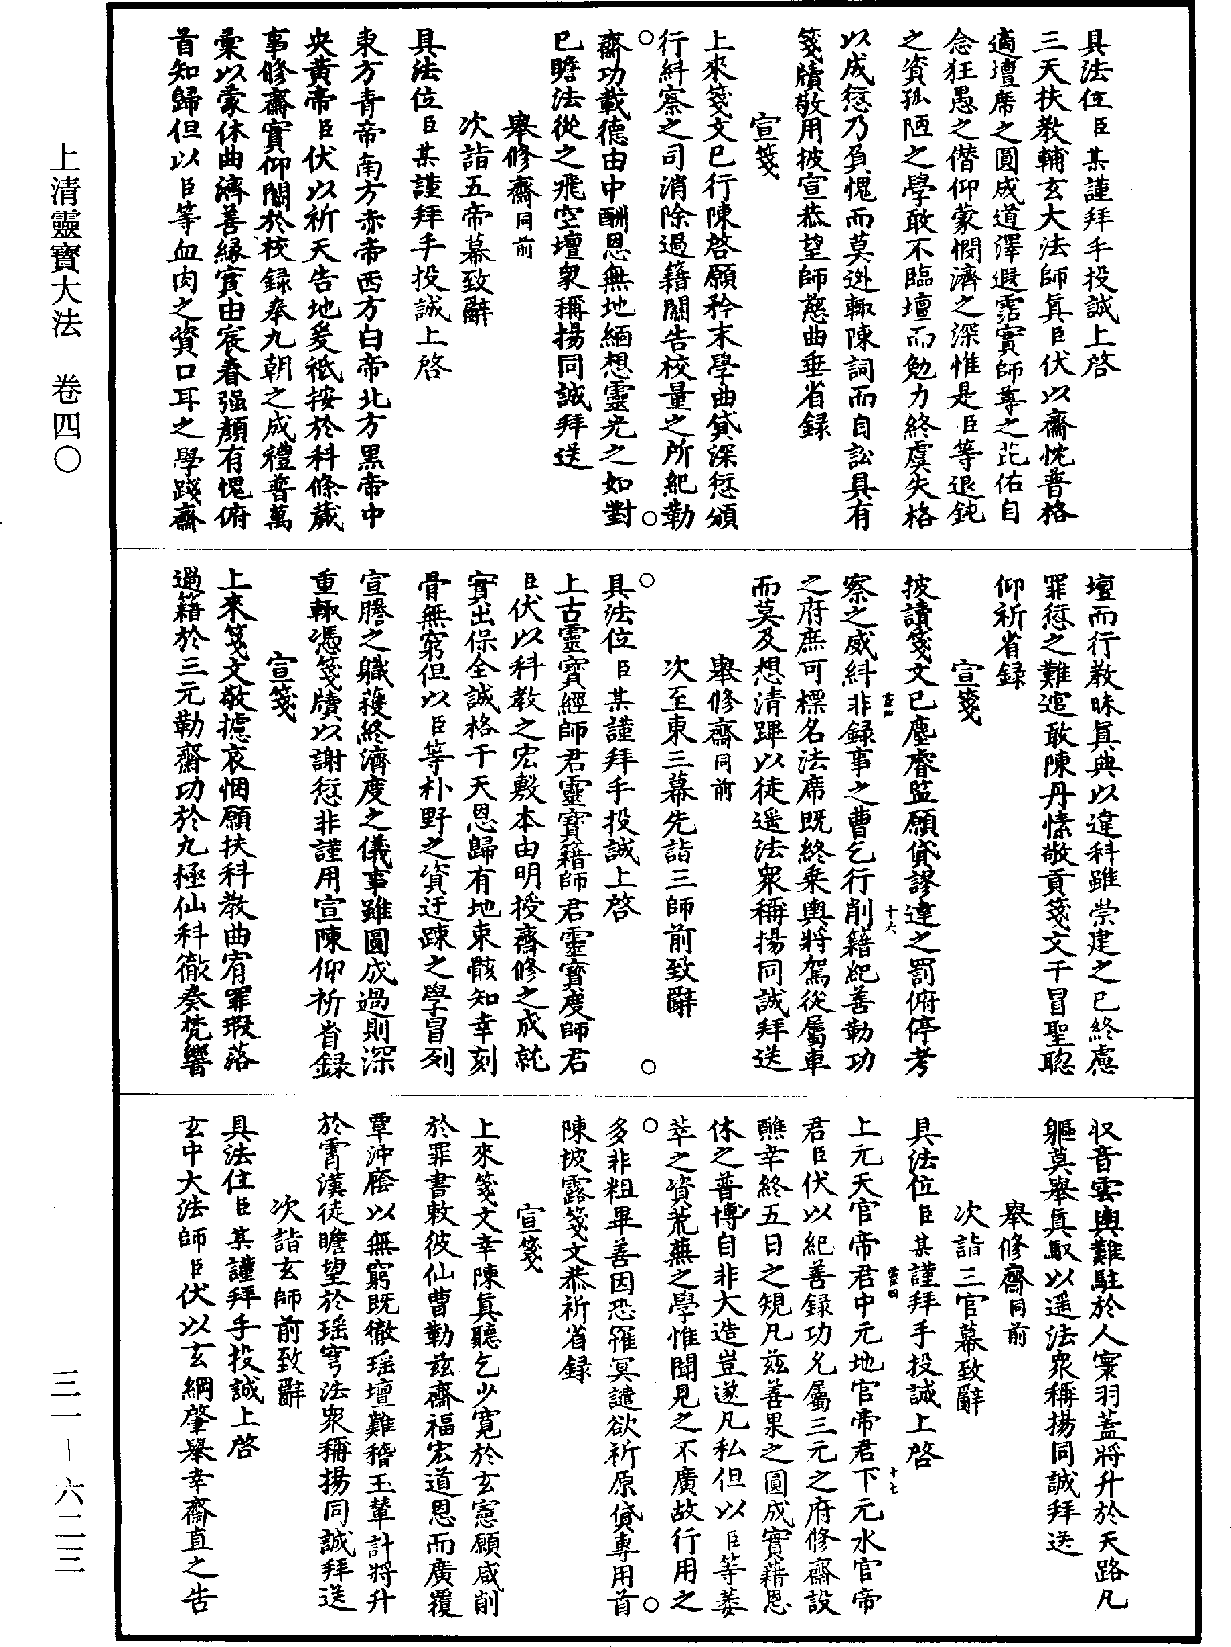 具法位臣某謹拜手投誠上啓
三天扶教輔玄大法師真臣伏以齋忱普格
適壇席之圓成道澤遐霑實師尊之芘佑自
念狂愚之僭仰蒙憫濟之深惟是臣等退鈍
之資孤陋之學敢不臨壇而勉力終虞失格
以成愆乃負愧而莫逃輙陳詞而自訟具有
箋牘敬用披宣恭望師慈曲垂省録
宣箋
上來箋文已行陳啓願矜末學曲貸深愆頒
行糾察之司消除過籍關告校量之所紀勒
齋功載德由中酬恩無地緬想靈光之如對
已瞻法從之飛空壇衆稱揚同誠拜送
舉修齋同前
次詣五帝幕致辭
具法位臣某謹拜手投誠上啓
東方青帝南方赤帝西方白帝北方黑帝中
央黄帝臣伏以祈天告地爰祗按於科條蕆
事修齋實仰關於校録奉九朝之成禮普萬
彙以蒙休曲濟善緣實由宸眷强顏有愧俯
首知歸但以臣等血肉之資口耳之學踐齋
壇而行教昧真典以違科雖崇建之已終慮
罪愆之難逭敢陳丹愫敬貢箋文干冒聖聦
仰祈省録
宣箋
披讀箋文已塵睿監願貸謬違之罰俯停考
察之威糾非録事之曹乞行削籍紀善勒功
之府庶可標名法席既終乘輿將駕從屬車
而莫及想清蹕以徒遥法衆稱揚同誠拜送
舉修齋同前
次至東三幕先詣三師前致辭
具法位臣某謹拜手投誠上啓
上古靈寶經師君靈寶籍師君靈寶度師君
臣伏以科教之宏敷本由明授齋修之成就
實出保全誠格于天恩歸有地束骸知幸刻
骨無窮但以臣等朴野之資迂踈之學冒列
宣謄之職獲終濟度之儀事雖圓成過則深
重輙憑箋牘以謝愆非謹用宣陳仰祈省録
宣箋
上來箋文敬攄哀悃願扶科教曲宥罪瑕落
過籍於三元勒齋功於九極仙科徹奏梵響
收音雲輿難駐於人寰羽蓋將升於天路凡
軀莫舉真馭以遥法衆稱揚同誠拜送
舉修齋同前
次詣三官幕致辭
具法位臣某謹拜手投誠上啓
上元天官帝君中元地官帝君下元水官帝
君臣伏以紀善録功允屬三元之府修齋設
醮幸終五日之規凡茲善果之圓成實籍恩
休之普博自非大造豈遂凡私但以臣等萎
莘之資荒蕪之學惟聞見之不廣故行用之
多非粗畢善因恐罹冥譴欲祈原貸專用首
陳披露箋文恭祈省録
宣箋
上來箋文幸陳真聽乞少寛於玄憲願咸削
於罪書敕彼仙曹勒兹齋福宏道恩而廣覆
覃沖廕以無窮既徹瑶壇難稽玉輦計將升
於霄漢徒瞻望於瑶穹法衆稱揚同誠拜送
次詣玄師前致辭
具法位臣某謹拜手投誠上啓
玄中大法師臣伏以玄綱肇舉幸齋直之告
上清靈寶大法　卷四〇
三一－六二三
十六
十七